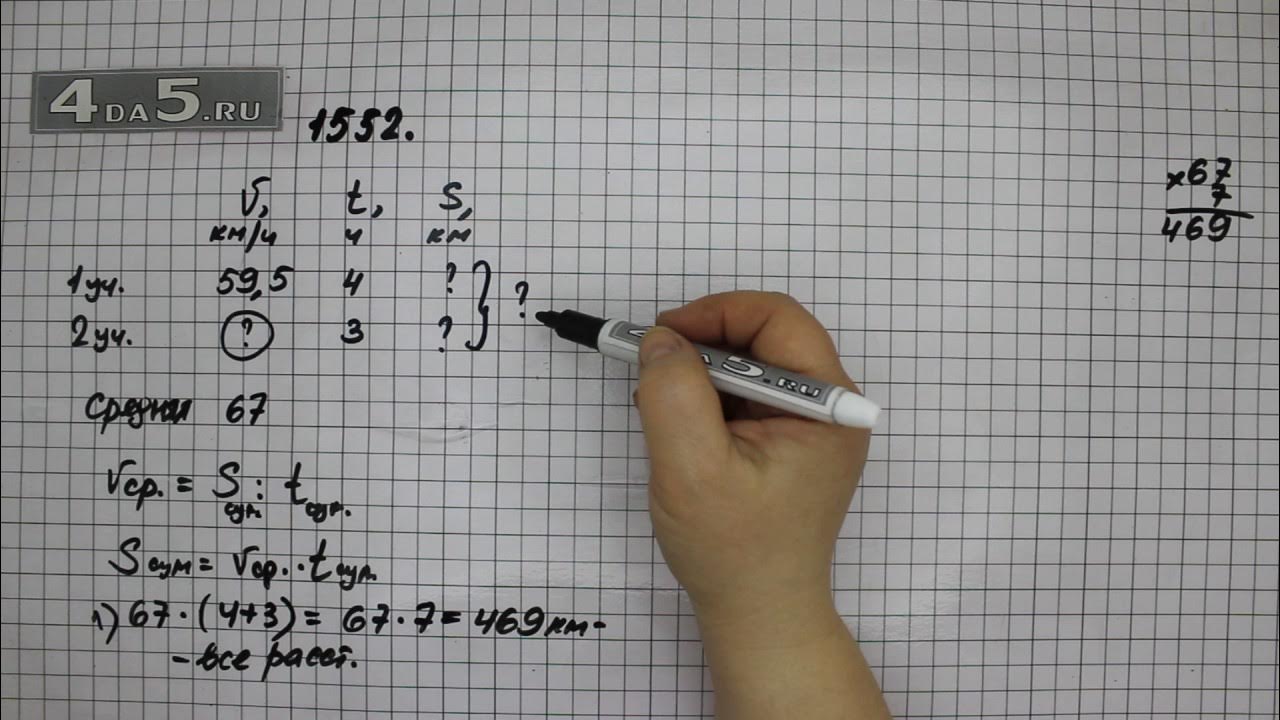 4DA5.RU
1552.
V, t, S,
км/ч ч км
1 уч. 59,5 4 ? } ?
2 уч. ? 3 ?
Средняя 67
Vср. = Sсум. : tсум.
Sсум = Vср. · tсум.
1) 67 · (4+3) = 67 · 7 = 469 км -
- все расст.
×67
7
469
4DA5.RU